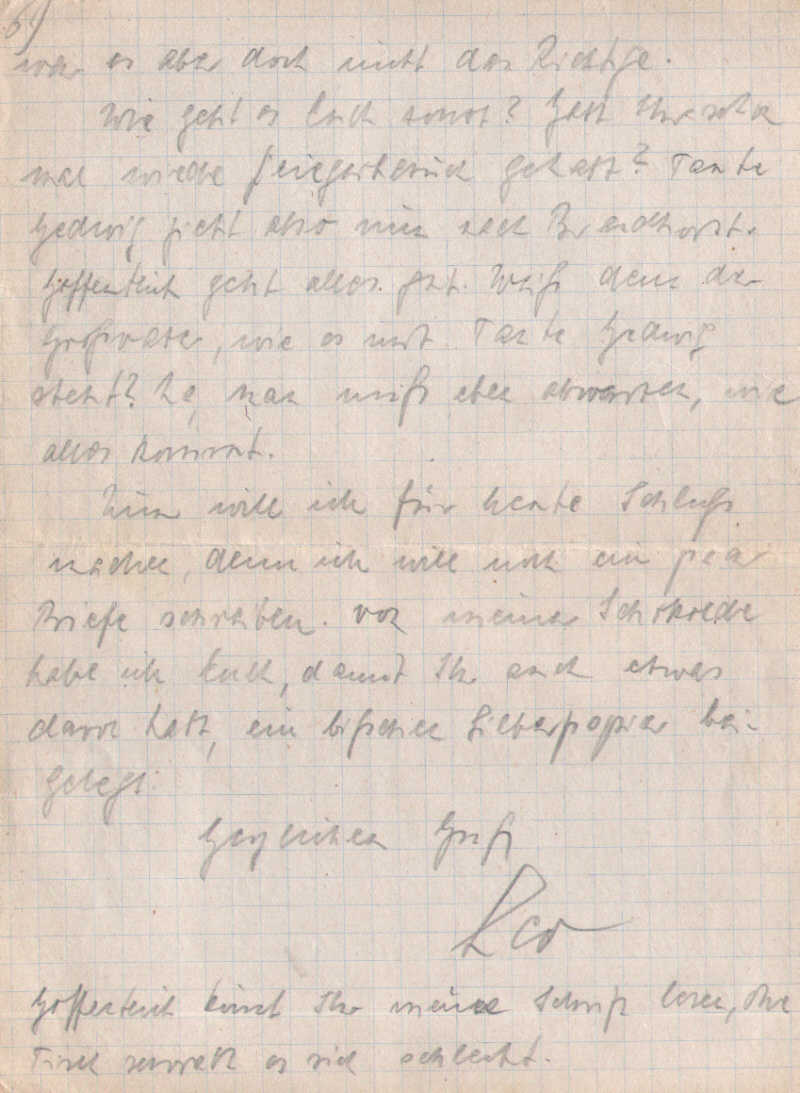 6)
war es aber doch nicht das Richtige.
Wie geht es Euch sonst? Habt Ihr schon
mal wieder Fliegerbesuch gehabt? Tante
Hedwig zieht also nun nach
Hoffentlich geht alles gut. Weiß denn der
Großvater, wie es mit Tante Hedwig
steht? Na, man muß eben abwarten, wie
alles kommt.
Nun will ich für heute Schluß
machen, denn ich will noch ein paar
Briefe schreiben. Von meiner Schokolade
habe ich Euch, damit Ihr auch etwas
davon habt, ein bißchen Silberpapier bei-
gelegt.
Herzlichen Gruß
Leo
Hoffentlich könnt Ihr meine Schrift lesen, ohne
Tisch schreibt es sich schlecht.